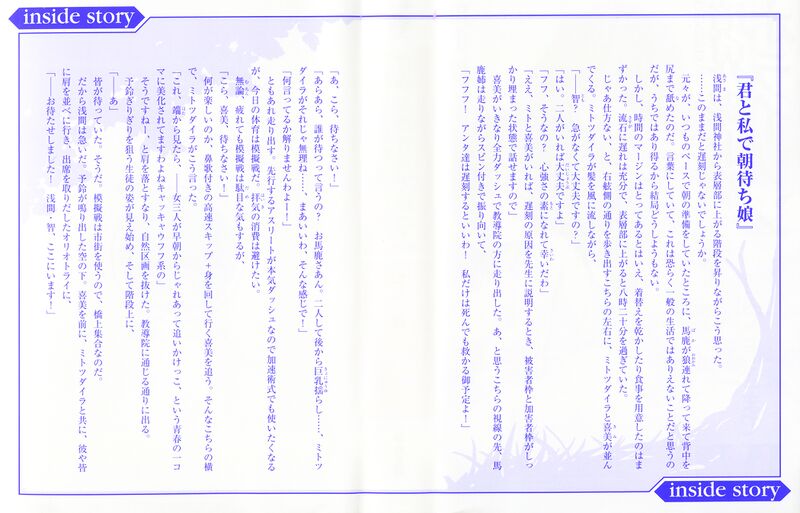 inside story
『君と私で朝待ち娘』
浅間は、浅間神社から表層部に上がる階段を昇りながらこう思った。
……このままだと遅刻じゃないでしょうか。
元々が、いつものペースで朝の準備をしていたところに、馬鹿が狼連れて降って来て背中を
尻まで舐めたのだ。言葉にしていて、これは恐らく一般の生活ではありえないことだと思うの
だが、うちではあり得るから結局どうしようもない。
しかし、時間のマージンはとってあるとはいえ、着替えを乾かしたり食事を用意したのはま
ずかった。流石に遅れは充分で、表層部に上がると八時二十分を過ぎていた。
じゃあ仕方ない、と、右舷側の通りを歩き出すこちらの左右に、ミトツダイラと喜美が並ん
でくる。ミトツダイラが髪を風に流しながら、
「――智? 急がなくて大丈夫ですの?」
「はい。二人がいれば大丈夫ですよ」
「フフ、そうなの? 心強さの素になれて幸いだわ」
「ええ、ミトと喜美がいれば、遅刻の原因を先生に説明するとき、被害者枠と加害者枠がしっ
かり埋まった状態で話せますので」
喜美がいきなり全力ダッシュで教導院の方に走り出した。あ、と思うこちらの視線の先、馬
鹿姉は走りながらスピン付きで振り向いて、
「フフフ! アンタ達は遅刻するといいわ! 私だけは死んでも救かる御予定よ!」
「あ、こら、待ちなさい!」
「あらあら、誰が待つって言うの? お馬鹿さあん。二人して後から巨乳揺らし……、ミトツ
ダイラがそれじゃ無理ね……、まあいいわ、そんな感じで!」
「何言ってるか解りませんわよ――!」
ともあれ走り出す。先行するアスリートが本気ダッシュなので加速術式でも使いたくなる
が、今日の体育は模擬戦だ。拝気の消費は避けたい。
無論、疲れても模擬戦は駄目な気もするが、
「こら、喜美、待ちなさい!」
何が楽しいのか、鼻歌付きの高速スキップ＋身を回して行く喜美を追う。そんなこちらの横
で、ミトツダイラがこう言った。
「これ、端から見たら、――女三人が早朝からじゃれあって追いかけっこ、という青春の一コ
マに美化されてますわよねキャッキャウフフ系の」
そうですねー、と肩を落とすなり、自然区画を抜けた。教導院に通じる通りに出る。
予鈴ぎりぎりを狙う生徒の姿が見え始め、そして階段上に、
「――あ」
皆が待っていた。そうだ。模擬戦は市街を使うので、橋上集合なのだ。
だから浅間は急いだ。予鈴が鳴り出した空の下。喜美を前に、ミトツダイラと共に、彼や皆
に肩を並べに行き、出席を取りだしたオリオトライに、
「――お待たせしました! 浅間・智、ここにいます!」
inside story